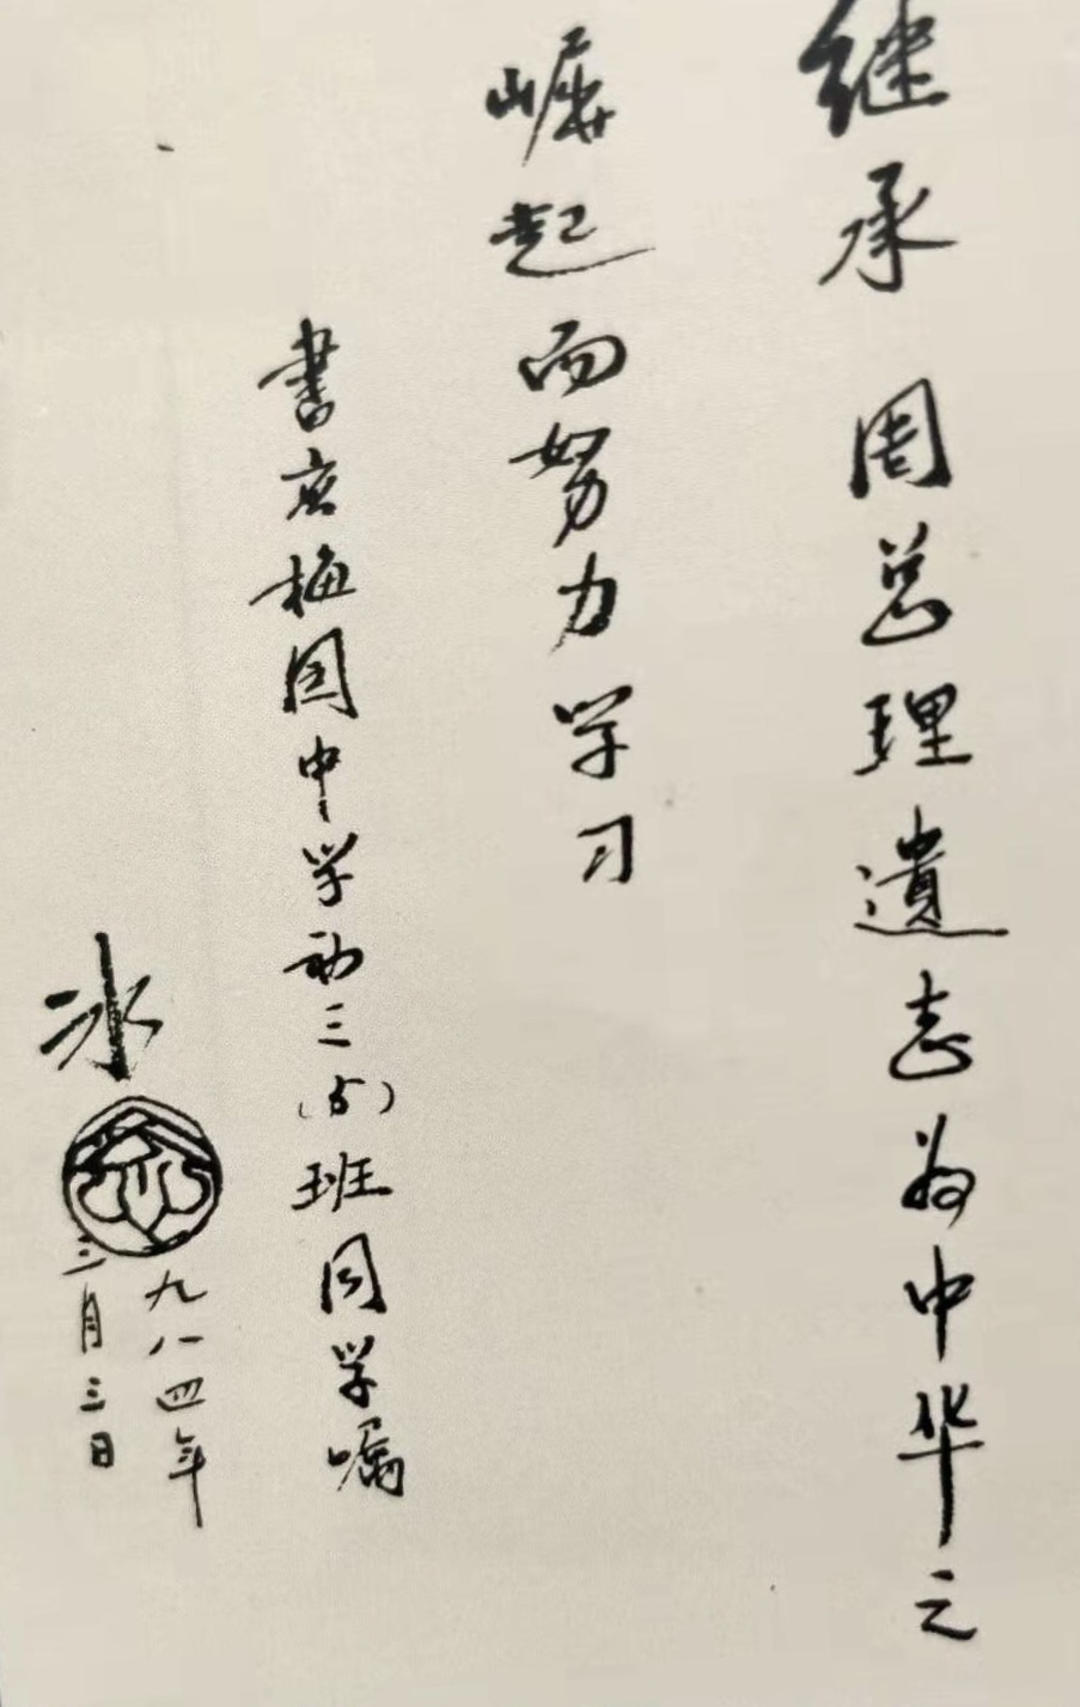 继承周总理遗志为中华之
崛起而努力学习
書应梅园中学初三(5)班同学嘱
冰
一九八四年
三月三日